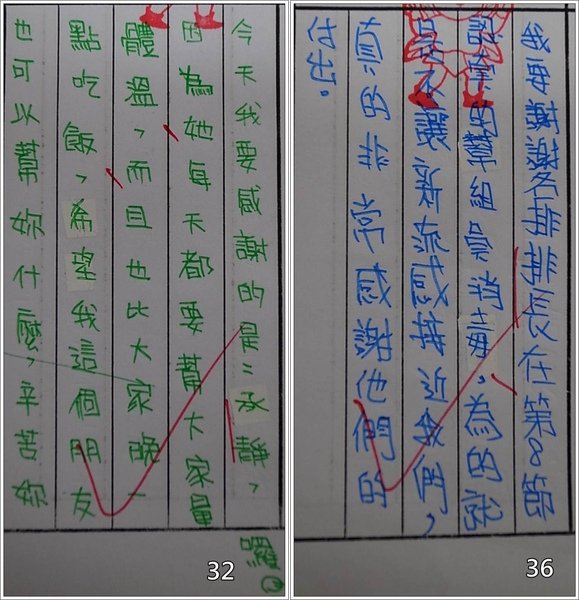 今天我要感謝的是:承靜,
因為她每天都要幫大家量
體溫,而且也比大家晚一
點吃飯,希望我這個朋友
也可以幫妳什麼,辛苦妳
囉
32
我要謝謝各排排長在第8節
的幫組員消毒,為的就
是不讓新流感接近我們,
真的非常感謝他們的
付出。
36